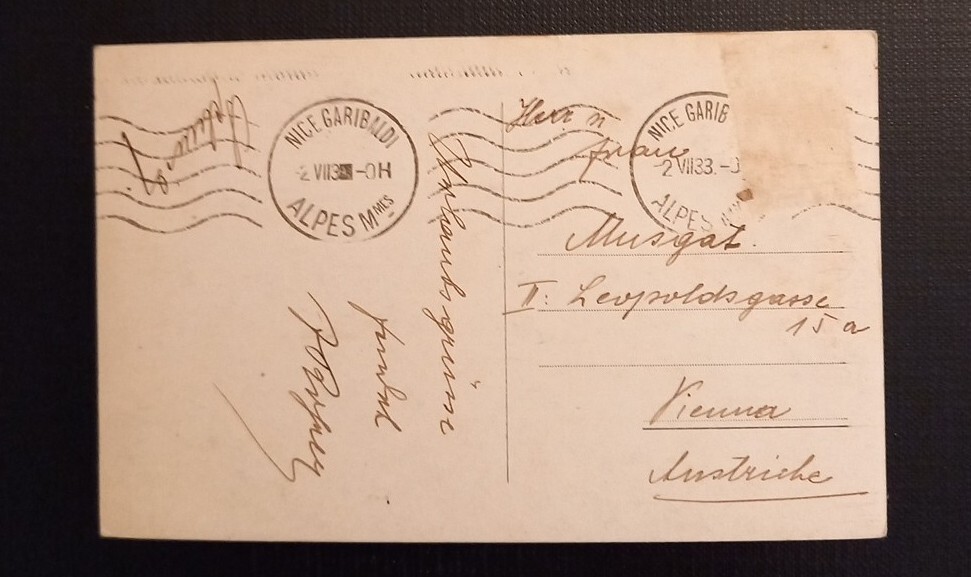 NICE GARIBALDI
-2 VII 33 -0H
ALPES Mmes
Urlaubsgrüsse
sendet
NICE GARIB
-2 VII 33.-0
ALPES M
Herr n
Frau
Musgat.
II: Leopoldsgasse
15 a
Vienna
Autriche